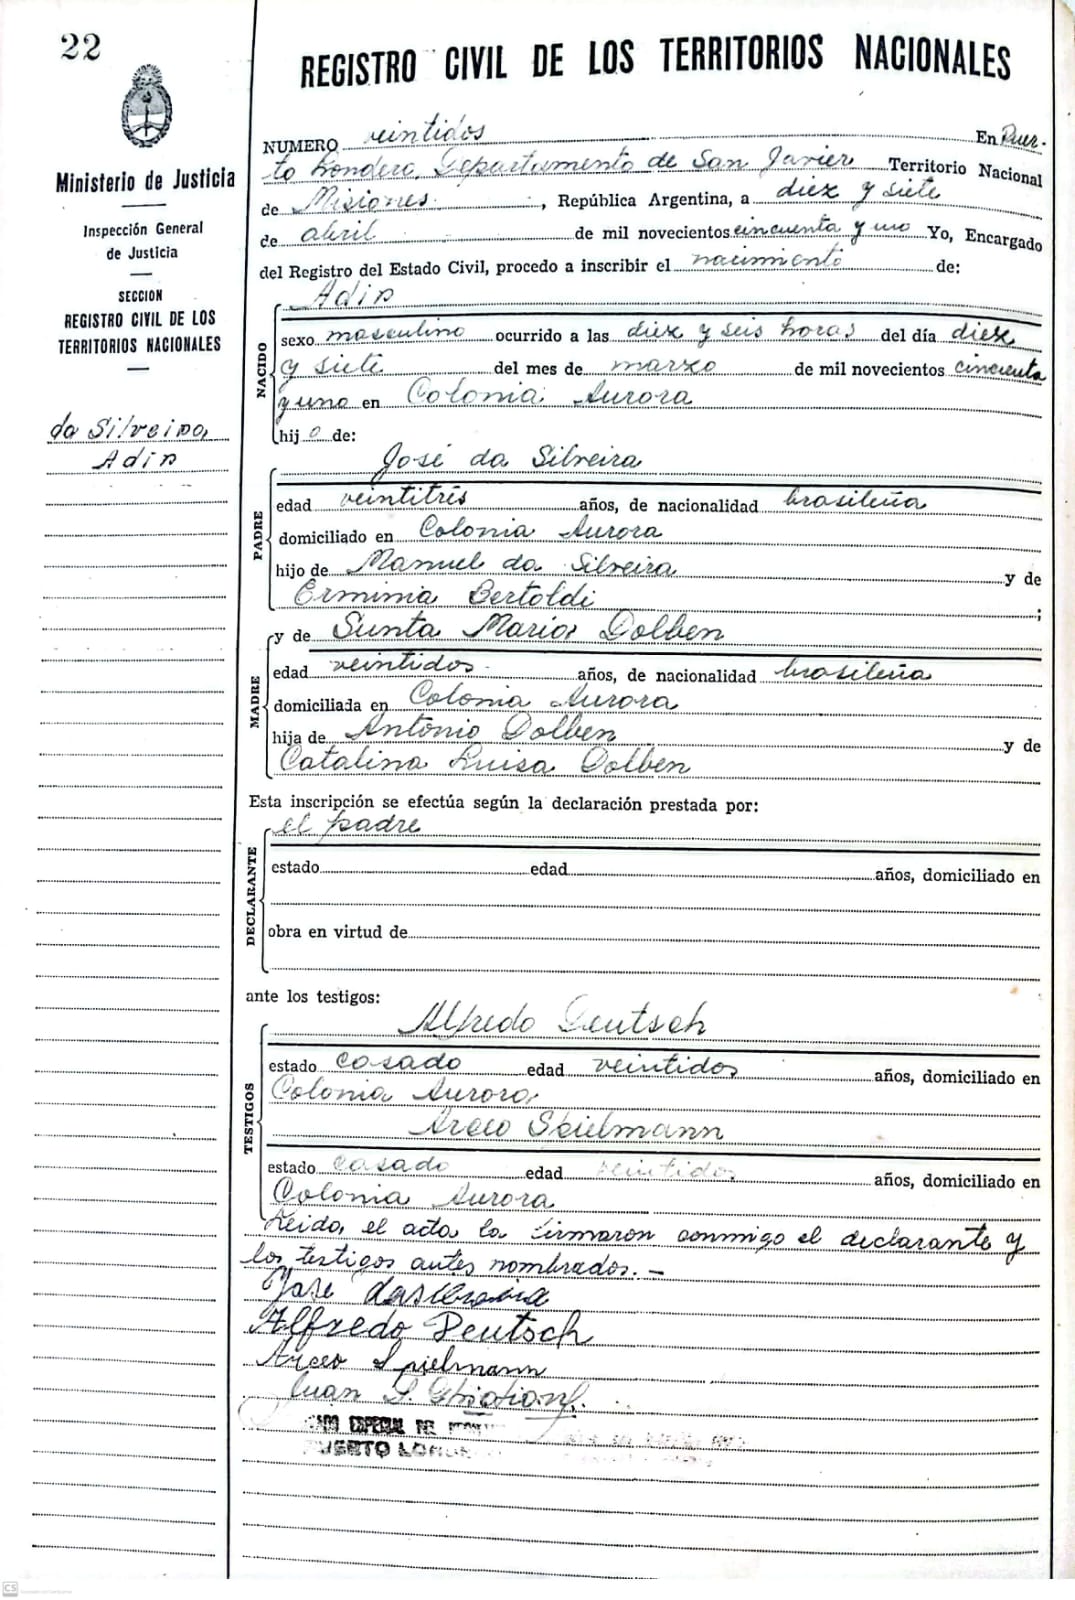 22
REGISTRO CIVIL DE LOS TERRITORIOS NACIONALES
Ministerio de Justicia
Inspección General
de Justicia
SECCION
REGISTRO CIVIL DE LOS
TERRITORIOS NACIONALES
da Silveira,
Adir
NUMERO veintidos En Puer-
to Londero, Departamento de San Javier Territorio Nacional
de Misiones , República Argentina, a diez y siete
de abril de mil novecientos cincuenta y uno Yo, Encargado
del Registro del Estado Civil, procedo a inscribir el nacimiento de:
NACIDO
Adir
sexo masculino ocurrido a las diez y seis horas del día diez
y siete del mes de marzo de mil novecientos cincuenta
y uno en Colonia Aurora
hijo de:
PADRE
José da Silveira
edad veintitrés años, de nacionalidad brasileña
domiciliado en Colonia Aurora
hijo de Manuel da Silveira y de
Erminia Bertoldi ;
MADRE
y de Sunta Maria Dolben
edad veintidos años, de nacionalidad brasileña
domiciliada en Colonia Aurora
hija de Antonio Dolben y de
Catalina Luisa Dolben
Esta inscripción se efectúa según la declaración prestada por:
DECLARANTE
el padre
estado edad años, domiciliado en
obra en virtud de
ante los testigos:
TESTIGOS
Alfredo Deutsch
estado casado edad veintidos años, domiciliado en
Colonia Aurora
Arceo Spielmann
estado casado edad veintidos años, domiciliado en
Colonia Aurora
Leida el acta la firmaron conmigo el declarante y
los testigos antes nombrados.-
José dasilveira
Alfredo Deutsch
Arceo Spielmann
Juan
ESPECIAL DEL
PUERTO
CS